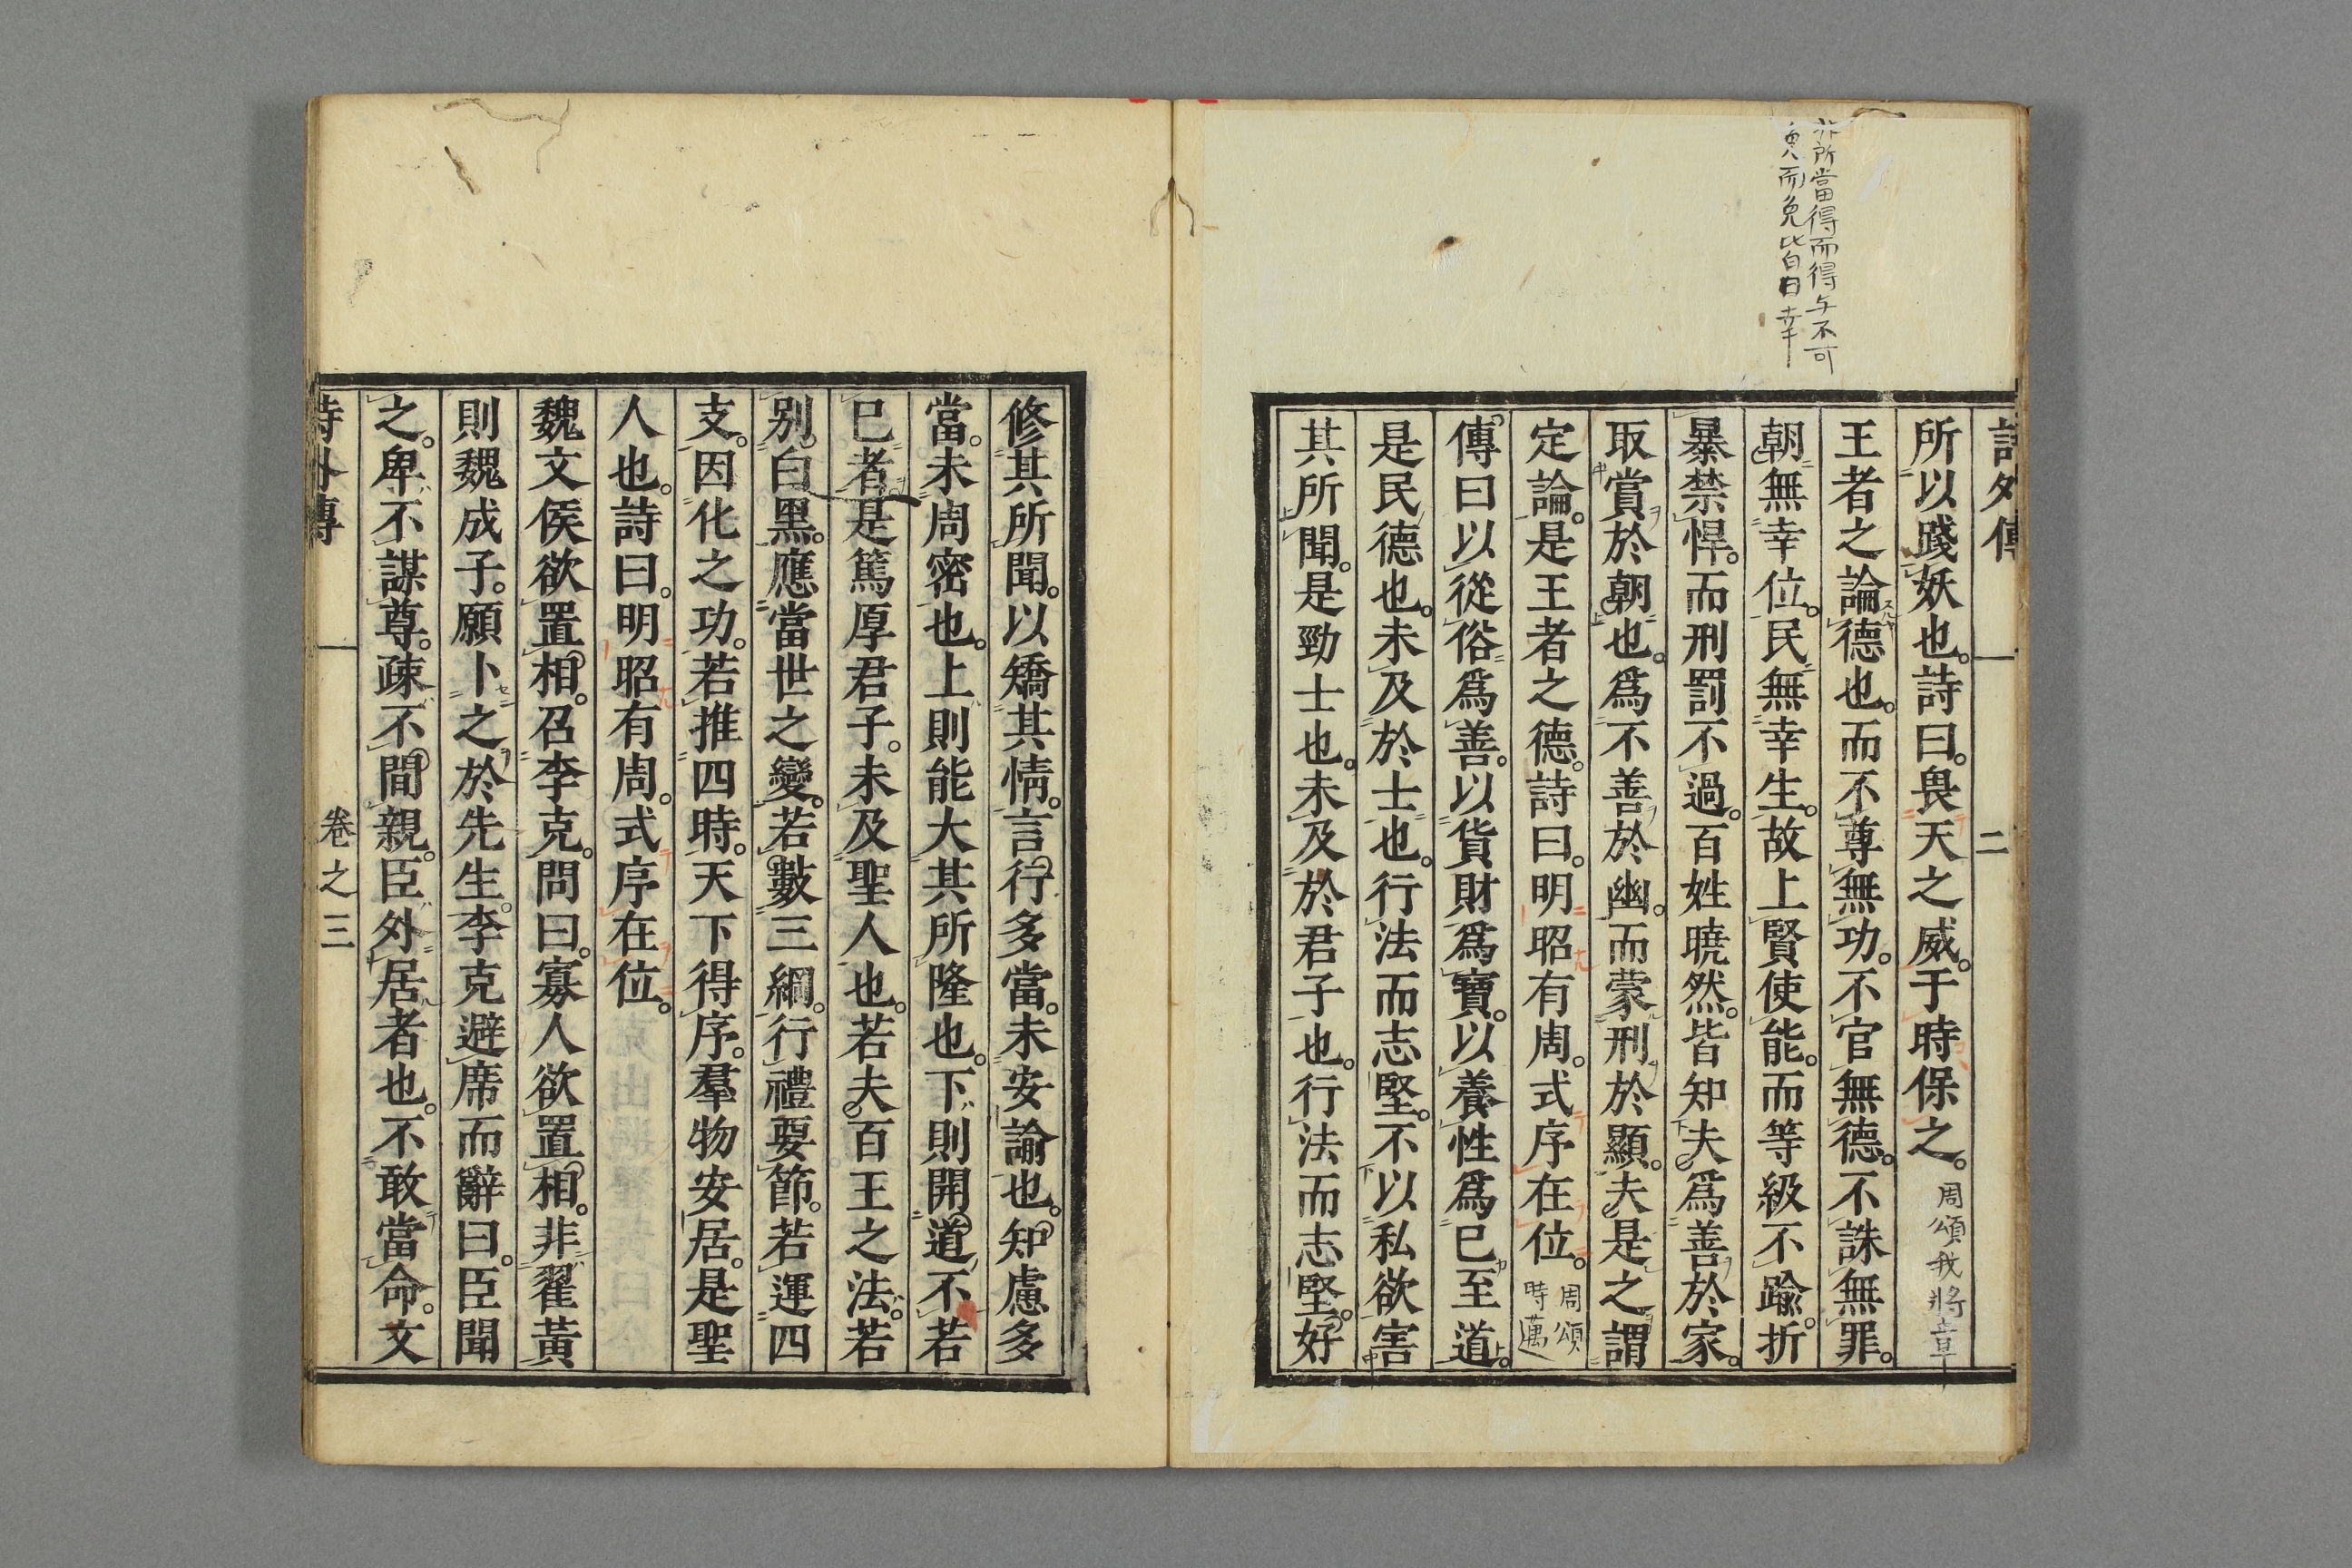 非所當得而得与不可
免而免比皆曰幸
詩外傳 二
所以踐妖也。詩曰。畏天之威。于時保之。周頌我將章
王者之論德也。而不尊無功。不官無德。不誅無罪。
朝無幸位。民無幸生。故上賢使能。而等級不踰。折
暴禁悍。而刑罰不過。百姓曉然。皆知夫爲善於家。
取賞於朝也。爲不善於幽。而蒙刑於顯。夫是之謂
定論。是王者之德。詩曰。明昭有周。式序在位。周頌時邁
傳曰以從俗爲善。以貨財爲寶。以養性爲已至道。
是民德也。未及於士也。行法而志堅。不以私欲害
其所聞。是勁士也。未及於君子也。行法而志堅。好
修其所聞。以矯其情。言行多當。未安諭也。知慮多
當。未周密也。上則能大其所隆也。下則開道不若
已者。是篤厚君子。未及聖人也。若夫百王之法。若
别白黑。應當世之變。若數三綱。行禮要節。若運四
支。因化之功。若推四時。天下得序。羣物安居。是聖
人也。詩曰。明昭有周。式序在位。
魏文侯欲置相。召李克。問曰。寡人欲置相。非翟黃
則魏成子。願卜之於先生。李克避席而辭曰。臣聞
之。卑不謀尊。疎不間親。臣外居者也。不敢當命。文
詩外傳 卷之三